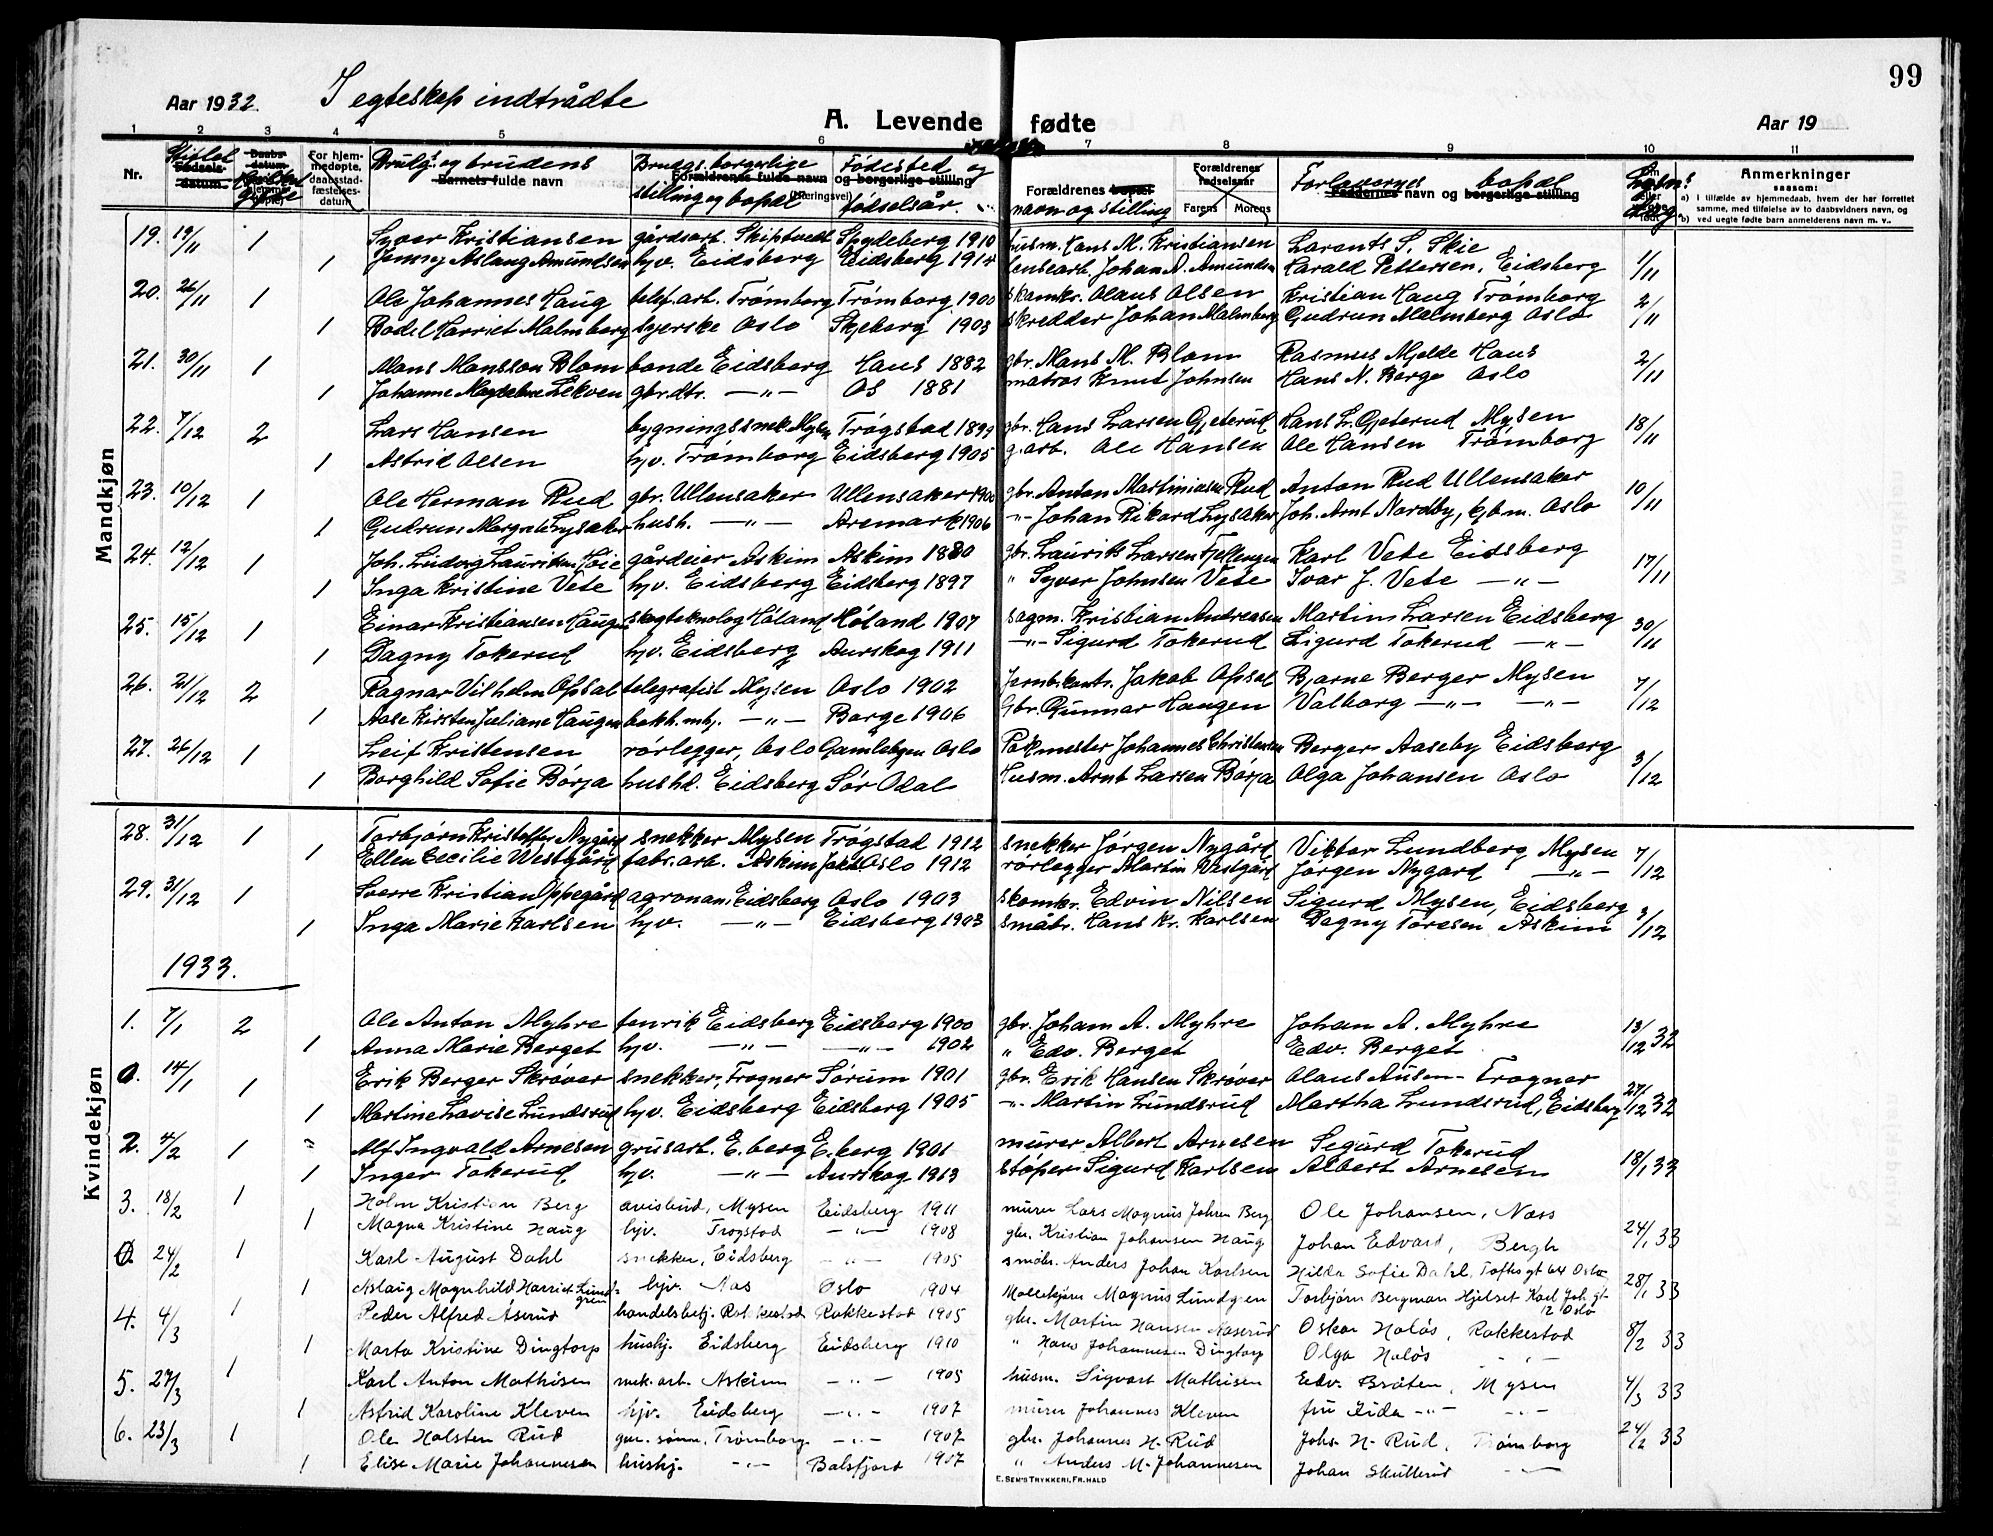 99
Aar 1932 I egteskap indtrådte
A. Levende fødte
Aar 19
1 2 3 4 5 6 7 8 9 10 11
Nr. Viglet Fødsels-datum. Daabs-datum For hjemmedøpte, daabsstadfæstelses-datum Brudg.s og brudens Barnets fulde navn Brudgs. borgerlige stilling og bopæl Forældrenes fulde navn og borgerlige stilling (Næringsvei) Fødested og fødselsår. Forældrenes bopæl navn og stilling Forældrenes fødselsaar Farens Morens Forlovernes Faddernes navn og borgerlige stilling bopæl Anmerkninger
saasom:
a) I tilfælde av hjemmedaab, hvem der har forrettet samme, med tilføielse av to daabsvidners navn, og
b) ved uegte fødte barn anmelderens navn m. v.
Mandkjøn
19. 19/11 1 Syver Kristiansen gårdsarb. Skiptvedt Spydeberg 1910 husm. Hans M. Kristiansen Larants S. Skie
1 Jenny Aslaug Amundsen hjv. Eidsberg Eidsberg 1914 Johan A. Amundsen Harald Pettersen, Eidsberg 1/11
20. 26/11 1 Ole Johannes Haug telef.arb. Trømborg Trømborg 1900 skomkr. Olaus Olsen Kristian Haug Trømborg 2/11
1 Bodel Harriet Malmberg syerske Oslo Skjeberg 1903 skredder Johan Malmberg Gudrun Malmberg Oslo
21. 30/11 1 Mons Monsson Blom bonde Eidsberg Haus 1882 gbr. Mons M. Blom Rasmus Mjelde Haus 2/11
1 Johanne Magdalene Lekven gbr.dtr. —"— Os 1881 matros Knut Johnsen Hans N. Berge Oslo
22. 7/12 2 Lars Hansen bygningssnek. Mysen Trøgstad 1899 gbr. Hans Larsen Gjeterud Hans L. Gjeterud Mysen 18/11
1 Astrid Olsen hjv. Trømborg Eidsberg 1905 g.arb. Ole Hansen Ole Hansen Trømborg
23. 10/12 1 Ole Herman Rud gbr. Ullensaker Ullensaker 1900 gbr. Anton Martiniusen Rud Anton Rud Ullensaker 10/11
1 Gudrun Margrete Lysaker hush. —"— Aremark 1906 —"— Johan Rikard Lysaker Joh. Arnt Nordby, kjbm. Oslo
24. 12/12 1 Joh. Ludvig Lauritsen Høie gårdeier Askim Askim 1880 gbr. Laurits Larsen Karl Vete Eidsberg 17/11
1 Inga Kristine Vete hjv. Eidsberg Eidsberg 1897 " Syver Johnsen Vete Ivar J. Vete —"—
25. 15/12 1 Einar Kristiansen Haugen skogteknolog Høland Høland 1907 sagm. Kristian Andreassen Martin Larsen Eidsberg 30/11
1 Dagny Tokerud hjv. Eidsberg Aurskog 1911 —"— Sigurd Tokerud Sigurd Tokerud —"—
26. 21/12 2 Ragnar Vilhelm Opsal telegrafist Mysen Oslo 1902 Jernb.kontr. Jakob Opsal Bjarne Berger Mysen 7/12
1 Aase Kirsten Juliane Haugen bokh. mhj. —"— Borge 1906 Gbr. Gunnar Haugen Valborg —"— —"—
27. 26/12 1 Leif Kristensen rørlegger, Oslo Gamlebyen Oslo Pakmester Johannes Christensen Berger Aaseby Eidsberg 3/12
1 Borghild Sofie Børja hushd. Eidsberg Sør Odal Husm. Arnt Larsen Børja Olga Johansen Oslo
Kvindekjøn
28. 31/12 1 Torbjørn Kristoffer Nygård snekker Mysen Trøgstad 1912 snekker Jørgen Nygård Viktor Lundberg Mysen 7/12
1 Ellen Cecilie Westgård fabr.arb. Askim Oslo 1912 rørlegger Martin Westgård Jørgen Nygard —"—
29. 31/12 1 Sverre Kristian Oppegård agronom Eidsberg Oslo 1903 skomkr. Edvin Nilsen Sigurd Mysen, Eidsberg
1 Inga Marie Karlsen hjv. —"— Eidsberg 1903 småbr. Hans Kr. Karlsen Dagny Toresen Askim 3/12
1933.
1. 7/1 2 Ole Anton Myhre fenrik Eidsberg Eidsberg 1900 gbr. Johan A. Myhre Johan A. Myhre 13/12 32
1 Anna Marie Berget hjv. —"— —"— 1902 " Edv. Berget Edv. Berget
0. 14/1 1 Erik Berger Skrøver snekker, Frogner Sørum 1901 gbr. Erik Hansen Skrøver Olaus Ausen Frogner
1 Martine Lovise Lundsrud hjv. Eidsberg Eidsberg 1905 —"— Martin Lundsrud Martha Lundsrud, Eidsberg 27/12 32
2. 4/2 1 " Alf Ingvald Arnesen grusarb. E.berg E.berg 1901 murer Albert Arnesen Sigurd Tokerud
1 Inger Tokerud hjv. —"— Aurskog 1913 støper Sigurd Karlsen Albert Arnesen 18/1 33
3. 18/2 1 Holm Kristian Berg avisbud, Mysen Eidsberg 1911 murer Lars Magnus Johren Berg Ole Johansen, Næss
1 Magna Kristine Haug hjv. Trøgstad —"— 1908 gbr. Kristian Johansen Haug Johan Edvard, Bergh 24/1 33
0. 24/2 1 Karl August Dahl snekker, Eidsberg —"— 1905 småbr. Anders Johan Karlsen Hilda Sofie Dahl, Toftesgt 64 Oslo
1 Aslaug Magnhild Harriet Lundgren hjv. Aas Oslo 1904 Magnus Lundgren Torbjørn Bergman Hjelset Karl Joh. gt. 12 Oslo 28/1 33
4. 4/3 1 Peder Alfred Åserud handelsbetj. Rakkestad Rakkestad 1905 gbr. Martin Hansen Aaserud Oskar Holøs, Rakkestad
1 Marta Kristine Dingtorp hushj. Eidsberg Eidsberg 1910 " Hans Johannesen Dingtorp Olga Holøs —"— 8/2 33
5. 27/3 1 Karl Anton Mathisen mek.arb. Askim —"— 1905 husm. Sigvart Mathisen Edv. Bråten, Mysen 4/3 33
1 Astrid Karoline Kleven hjv. Eidsberg —"— 1907 murer Johannes Kleven fru Lida —"— —"—
6. 23/3 1 Ole Holsten Rud gbr. sønn, Trømborg —"— 1907 gbr. Johannes H. Rud Johs. H. Rud, Trømborg 24/2 33
1 Elise Marie Johannesen hushj. —"— Balsfjord 1907 " Anders M. Johannesen Johan Skullerud —"—
E. SEM'S TRYKKERI, FR.HALD